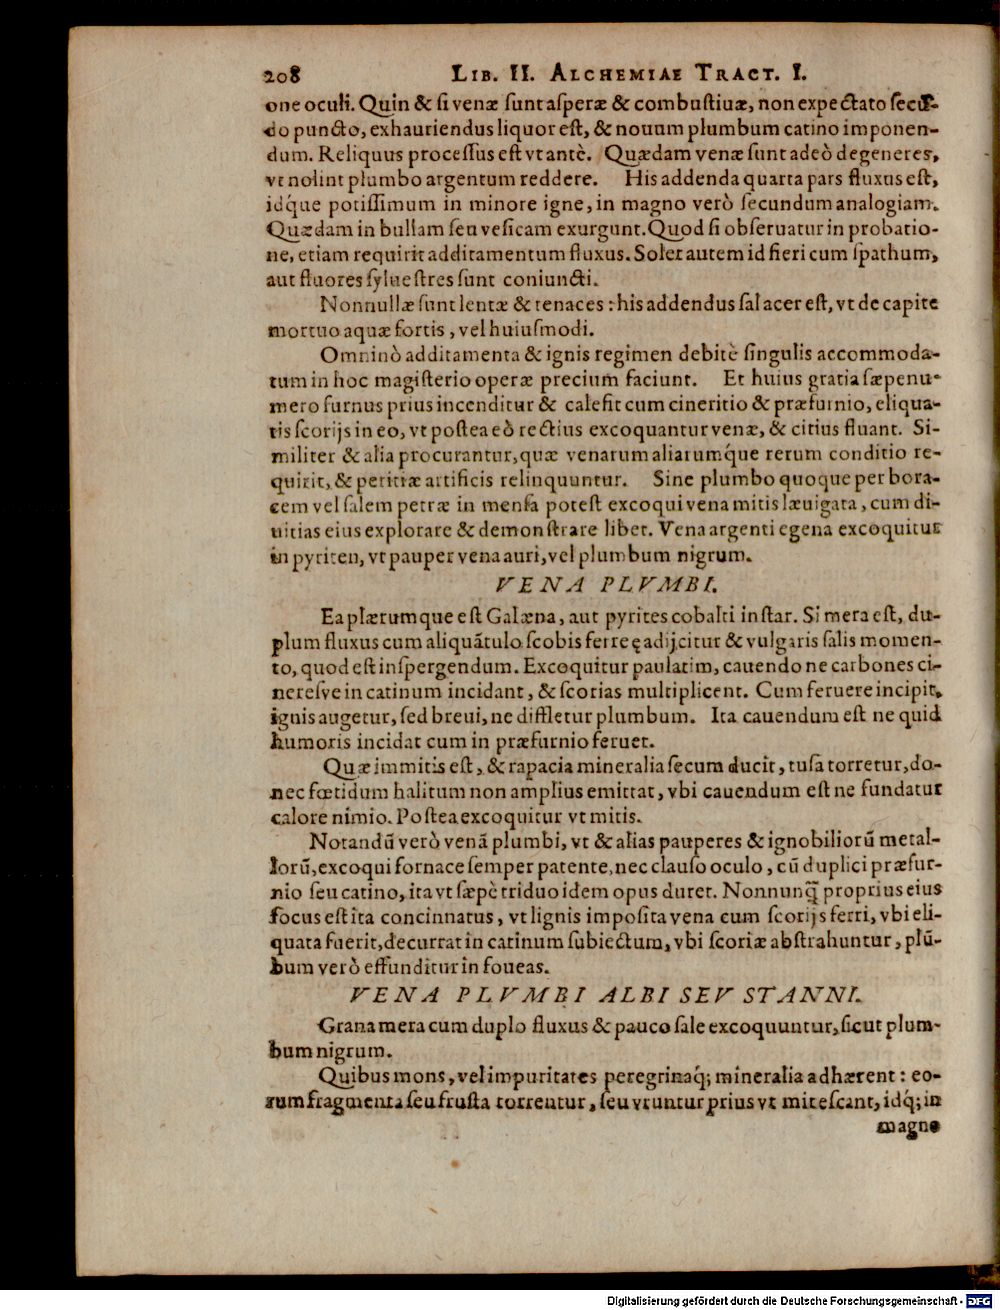 208 LIB. II. ALCHEMIAE TRACT. I.
one oculi. Quin & si venæ sunt asperæ & combustiuæ, non expectato secū-
do puncto, exhauriendus liquor est, & nouum plumbum catino imponen-
dum. Reliquus processus est vt antè. Quædam venæ sunt adeò degeneres,
vt nolint plumbo argentum reddere. His addenda quarta pars fluxus est,
idq́ue potissimum in minore igne, in magno verò secundum analogiam.
Quædam in bullam seu vesicam exurgunt. Quod si obseruatur in probatio-
ne, etiam requirit additamentum fluxus. Solet autem id fieri cum spathum,
aut fluores syluestres sunt coniuncti.
Nonnullæ sunt lentæ & tenaces: his addendus sal acer est, vt de capite
mortuo aquæ fortis, vel huiusmodi.
Omninò additamenta & ignis regimen debitè singulis accommoda-
tum in hoc magisterio operæ precium faciunt. Et huius gratia sæpenu-
mero furnus prius incenditur & calefit cum cineritio & præfurnio, eliqua-
tis scorijs in eo, vt postea eò rectius excoquantur venæ, & citius fluant. Si-
militer & alia procurantur, quæ venarum aliarumq́ue rerum conditio re-
quirit, & peritiæ artificis relinquuntur. Sine plumbo quoque per bora-
cem vel salem petræ in mensa potest excoqui vena mitis læuigata, cum di-
uitias eius explorare & demonstrare libet. Vena argenti egena excoquitur
in pyriten, vt pauper vena auri, vel plumbum nigrum.
VENA PLVMBI.
Ea plærumque est Galæna, aut pyrites cobalti instar. Si mera est, du-
plum fluxus cum aliquātulo scobis ferreę adijcitur & vulgaris salis momen-
to, quod est inspergendum. Excoquitur paulatim, cauendo ne carbones ci-
neresve in catinum incidant, & scorias multiplicent. Cum feruere incipit,
ignis augetur, sed breui, ne diffletur plumbum. Ita cauendum est ne quid
humoris incidat cum in præfurnio feruet.
Quæ immitis est, & rapacia mineralia secum ducit, tusa torretur, do-
nec fœtidum halitum non amplius emittat, vbi cauendum est ne fundatur
calore nimio. Postea excoquitur vt mitis.
Notandū verò venā plumbi, vt & alias pauperes & ignobiliorū metal-
lorū, excoqui fornace semper patente, nec clauso oculo, cū duplici præfur-
nio seu catino, ita vt sæpè triduo idem opus duret. Nonnunq̄ proprius eius
focus est ita concinnatus, vt lignis imposita vena cum scorijs ferri, vbi eli-
quata fuerit, decurrat in catinum subiectum, vbi scoriæ abstrahuntur, plū-
bum verò effunditur in foueas.
VENA PLVMBI ALBI SEV STANNI.
Grana mera cum duplo fluxus & pauco sale excoquuntur, sicut plum-
bum nigrum.
Quibus mons, vel impuritates peregrinaq́; mineralia adhærent: eo-
rum fragmenta seu frusta torrentur, seu vruntur prius vt mitescant, idq́; in
magno
Digitalisierung gefördert durch die Deutsche Forschungsgemeinschaft - DFG